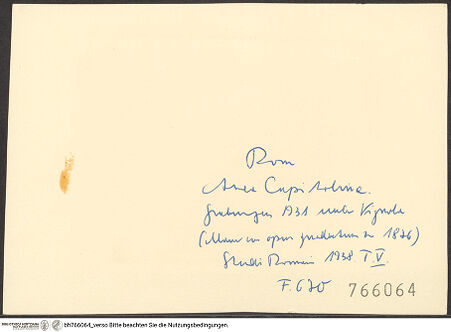 Rom
Area Capitolina.
Grabungen 1931 unter Vignola
(Mauer in opus quadratum 1876)
Studi Romani 1938 T V.
F. 670 766064
bh766064_verso Bitte beachten Sie die Nutzungsbedingungen.